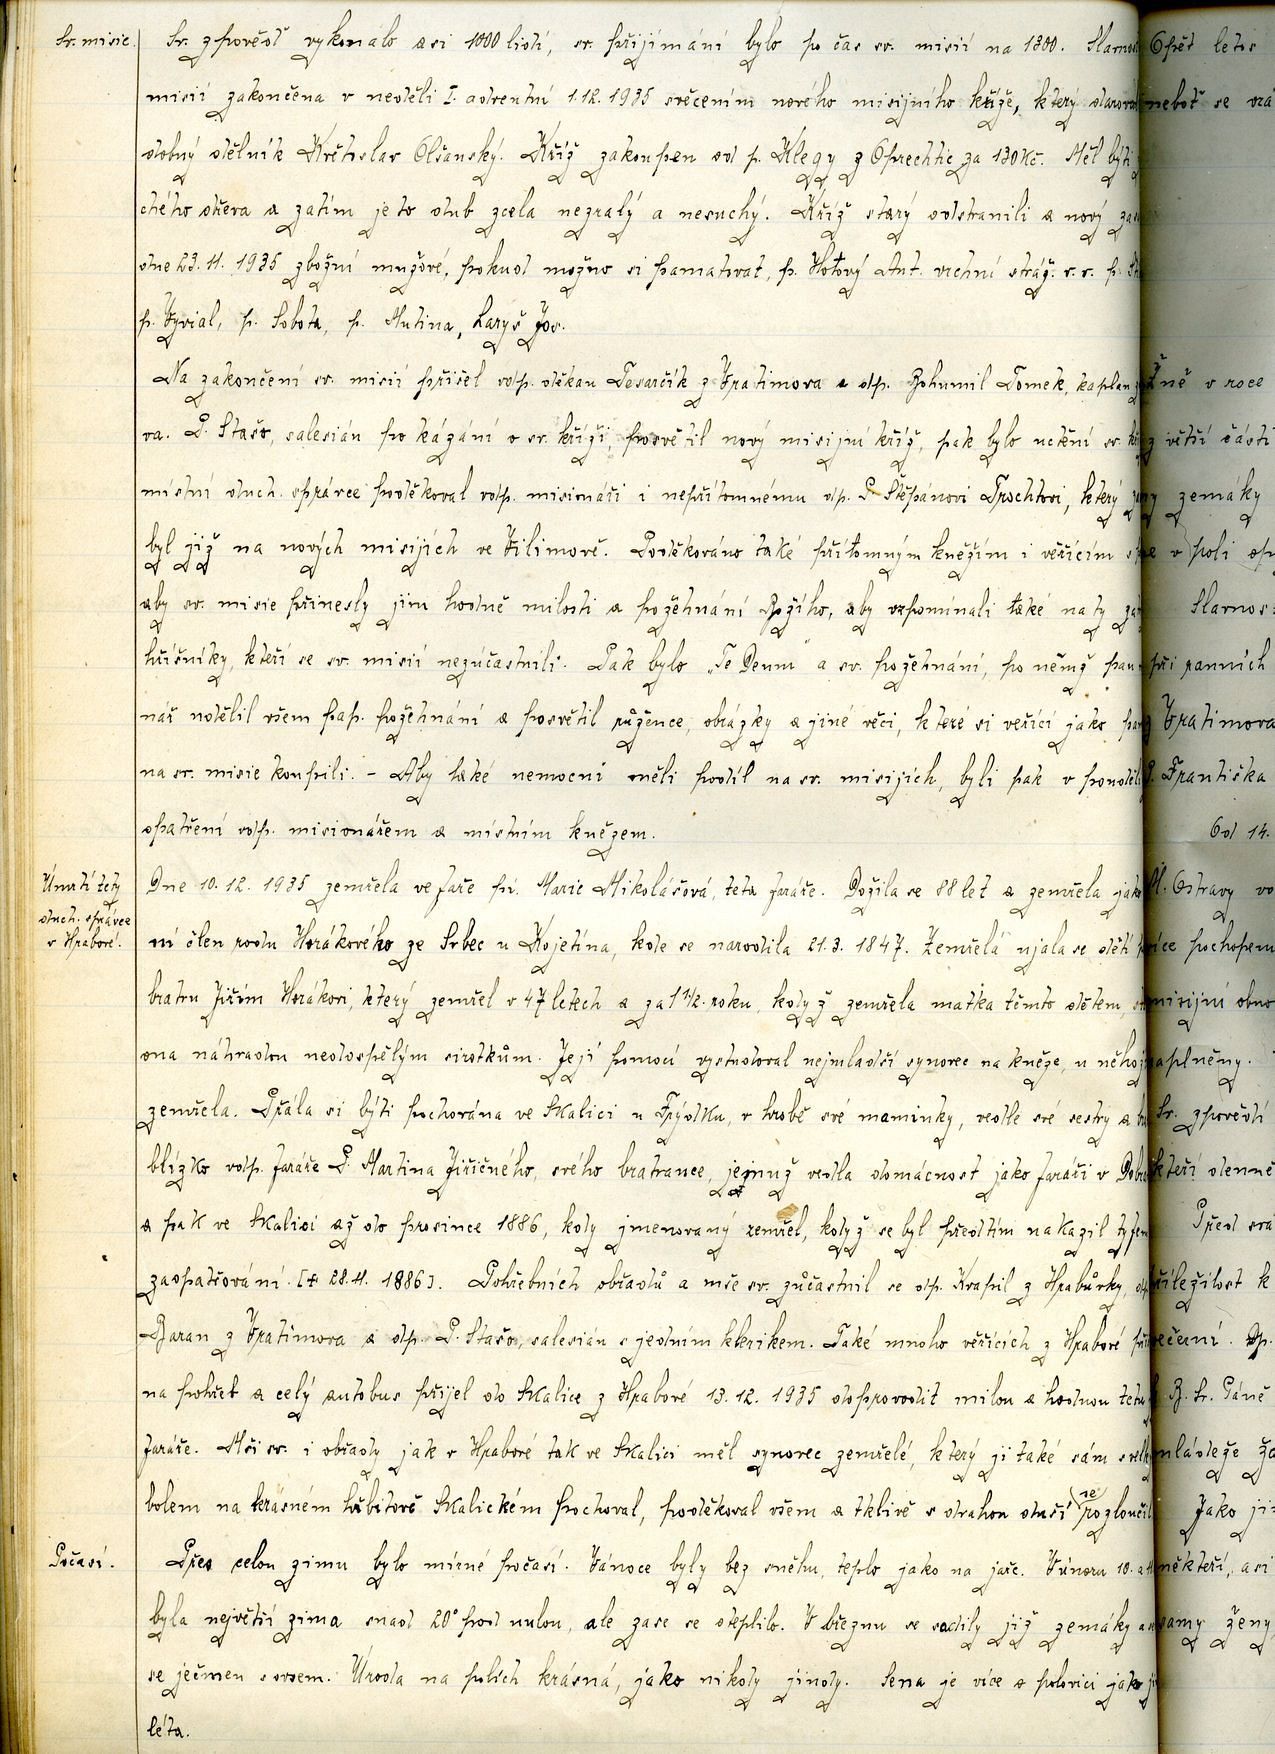 Sv. misie.
Sv. zpovědí vykonalo asi 1000 lidí, sv. přijímání bylo po čas sv. misií na 1300. Slavnost
misií zakončena v neděli I. adventní 1.12. 1935 svěcením nového misijního kříže, který daroval
dobný dělník Květoslav Olšanský. Kříž zakoupen od p. Klegy z Oprechtic za 130 Kč. Měl býti z
chého dřeva a zatím je to dub zcela nezralý a nesuchý. Kříž starý odstranili a nový zas
dne 23. 11. 1935 zbožní mužové, pokud možno si pamatovat, p. Hotový Ant. vrchní stráž. v. v. p.
p. Vyvial, p. Sobota, p. Mutina, Laryš Jos.
Na zakončení sv. misií přišel vdp. děkan Tesarčík z Vratimova a dp. Bohumil Tomek, kaplan z
va. P. Stašo, salesián po kázání o sv. kříži, posvětil nový misijní kříž, pak bylo uctění sv. kří
místní duch. správce poděkoval vdp. misionáři i nepřítomnému dp. P. Štěpánovi Trochtovi, který
byl již na nových misijích ve Vilimově. Poděkováno také přítomným kněžím i věřícím
aby sv. misie přinesly jim hodně milosti a požehnání Božího, aby vzpomínali také na ty
hříšníky, kteří se sv. misií nezúčastnili. Pak bylo „Te Deum" a sv. požehnání, po němž pan
nář udělil všem pap. požehnání a posvětil růžence, obrázky a jiné věci, které si veřící jako
na sv. misie koupili. - Aby také nemocní měli podíl na sv. misijích, byli pak v pondělí
opatření vdp. misionářem a místním knězem.
Úmrtí tety
duch. správce
v Hrabové.
Dne 10. 12. 1935 zemřela ve faře pí. Marie Mikolášová, teta faráře. Dožila se 88 let a zemřela jako
ní člen rodu Horákového ze Srbec u Kojetína, kde se narodila 21. 3. 1847. Zemřelá ujala se dětí po
bratru Jiřím Horákovi, který zemřel v 47 letech a za 1 1/2 roku, když zemřela matka těmto dětem,
ona náhradou nedospělým sirotkům. Její pomocí vystudoval nejmladší synovec na kněze, u něhož
zemřela. Přála si býti pochována ve Skalici u Frýdku, v hrobě své maminky, vedle své sestry a
blízko vdp. faráře P. Martina Jiříčného, svého bratrance, jemuž vedla domácnost jako faráři v
a pak ve Skalici až do prosince 1886, kdy jmenovaný zemřel, když se byl předtím nakazil tyfem
zaopatřování. [† 28. 11. 1886]. Pohřebních obřadů a mše sv. zúčastnil se dp. Krapil z Hrabůvky,
Baran z Vratimova a dp. P. Stašo, salesián s jedním klerikem. Také mnoho věřících z Hrabové
na pohřeb a celý autobus přijel do Skalice z Hrabové 13. 12. 1935 doprovodit milou a hodnou tetu
faráře. Mši sv. i obřady jak v Hrabové tak ve Skalici měl synovec zemřelé, který ji také sám s velkým
bolem na krásném hřbitově Skalickém pochoval, poděkoval všem a tklivě s drahou duší se rozloučil
Počasí.
Přes celou zimu bylo mírné počasí. Vánoce byly bez sněhu, teplo jako na jaře. V únoru 10. a 11.
byla největší zima snad 20° pod nulou, ale zase se oteplilo. V březnu se sadily již zemáky a
se ječmen s ovsem. Úroda na polích krásná, jako nikdy jindy. Sena je více o polovici jako
léta.
Opět letos
neboť se
ně v roce
větší části
zemáky
v poli
Slavnos
při ranních
Vratimova
P. Františka
Od 14.
M. Ostravy
více pochopení
misijní obno
naplněny.
Sv. zpovědi
kteří denně
Před
příležitost k
večerní. Dp.
B. Sv. Páně
mládeže
Jako
někteří, asi
samy ženy